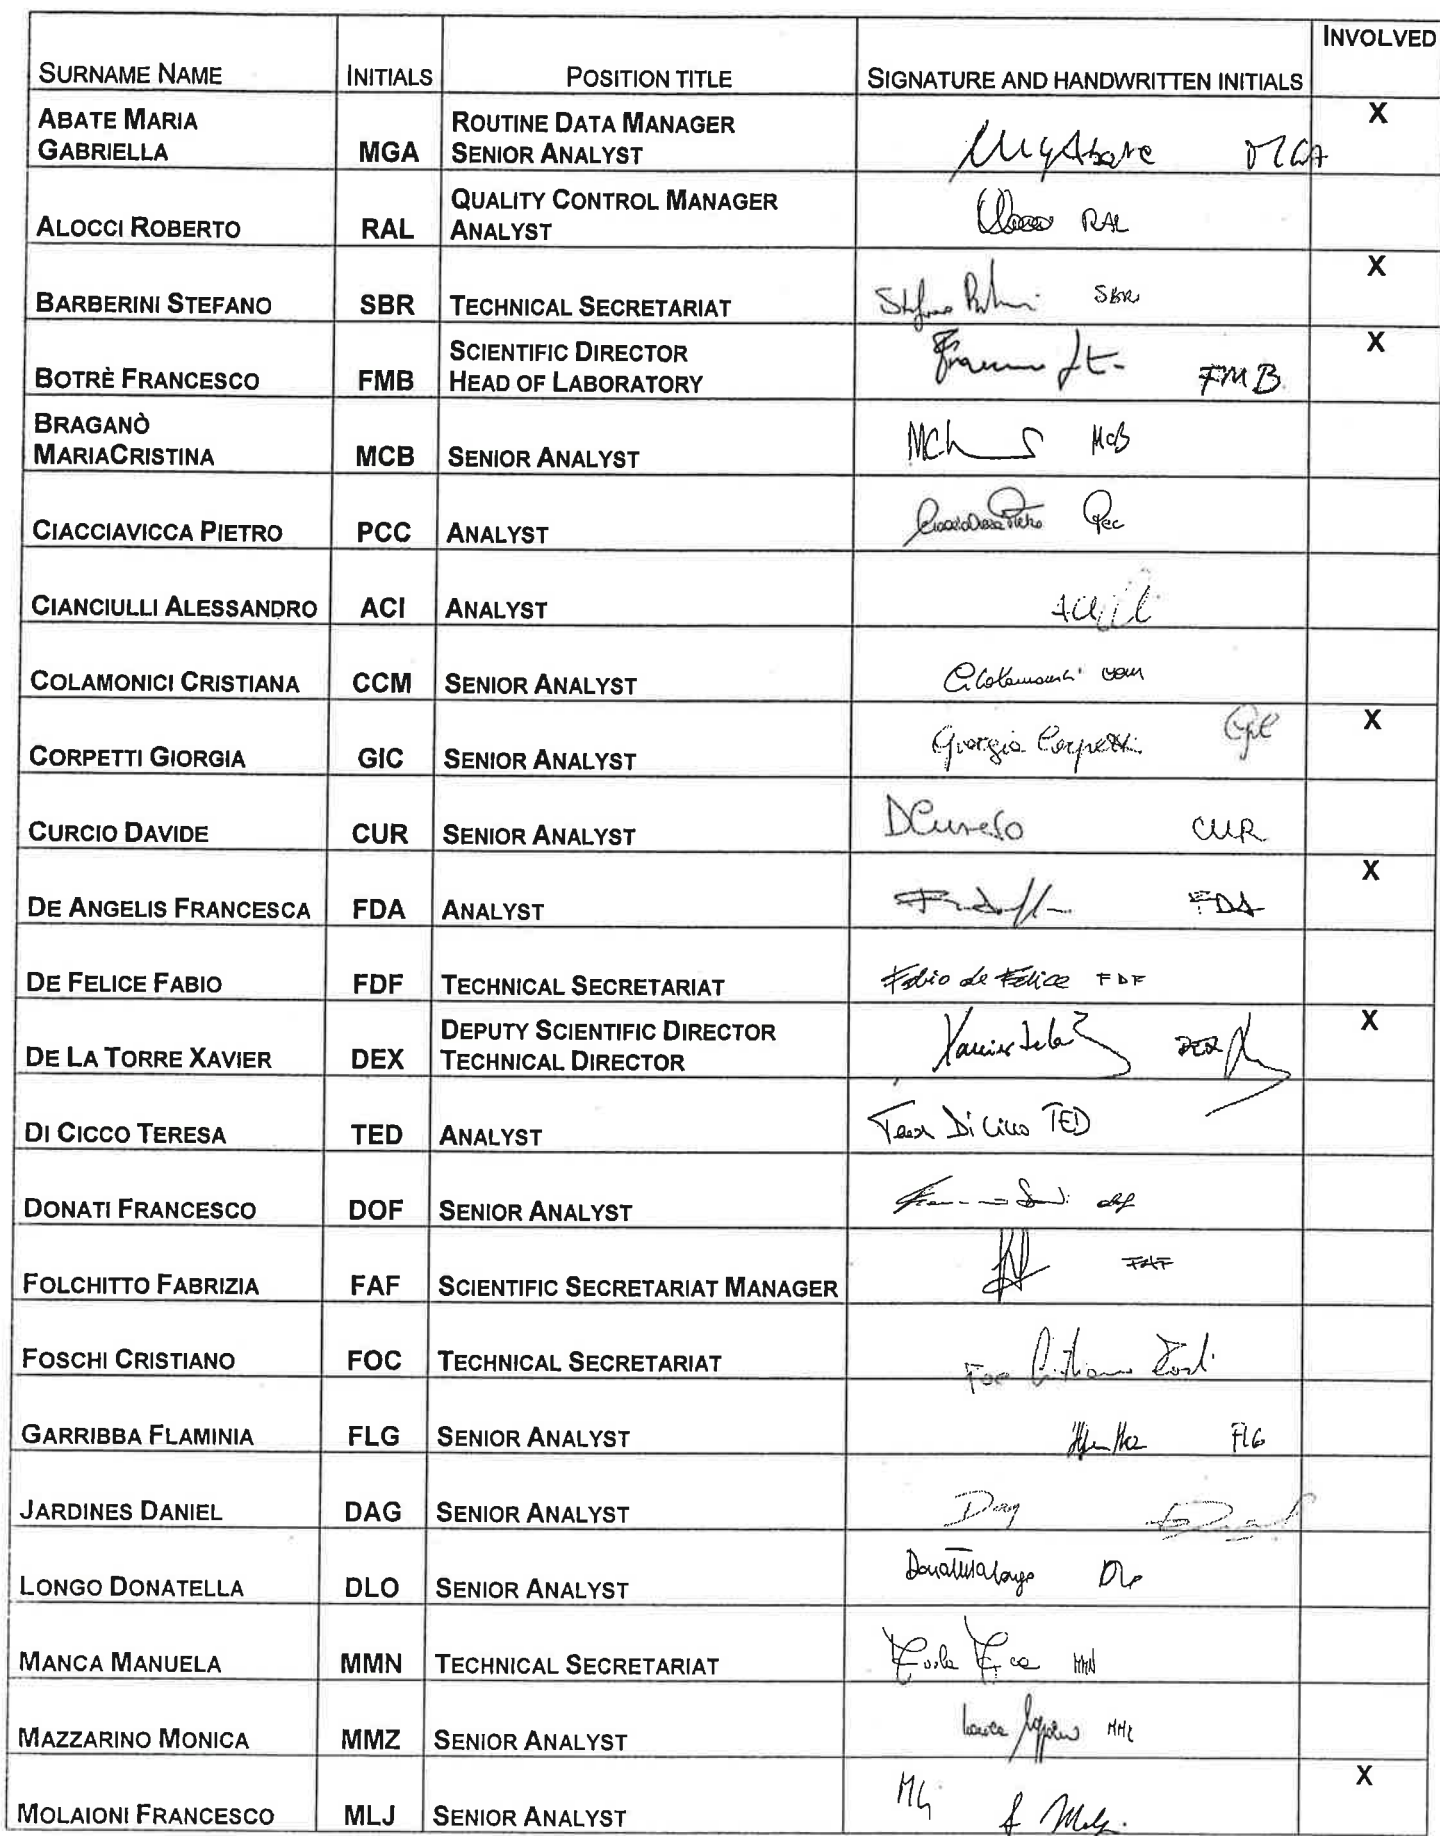 INVOLVED
SURNAME NAME INITIALS POSITION TITLE SIGNATURE AND HANDWRITTEN INITIALS
ABATE MARIA ROUTINE DATA MANAGER X
GABRIELLA MGA SENIOR ANALYST MgAbate MGA
QUALITY CONTROL MANAGER
ALOCCI ROBERTO RAL ANALYST RAL
X
BARBERINI STEFANO SBR TECHNICAL SECRETARIAT Stefano SBR
SCIENTIFIC DIRECTOR X
BOTRÈ FRANCESCO FMB HEAD OF LABORATORY FMB
BRAGANÒ
MARIACRISTINA MCB SENIOR ANALYST McB
CIACCIAVICCA PIETRO PCC ANALYST Pcc
CIANCIULLI ALESSANDRO ACI ANALYST
COLAMONICI CRISTIANA CCM SENIOR ANALYST CCM
X
CORPETTI GIORGIA GIC SENIOR ANALYST Giorgia Corpetti GIC
CURCIO DAVIDE CUR SENIOR ANALYST DCurcio CUR
X
DE ANGELIS FRANCESCA FDA ANALYST FDA
DE FELICE FABIO FDF TECHNICAL SECRETARIAT Fabio de Felice FDF
DEPUTY SCIENTIFIC DIRECTOR X
DE LA TORRE XAVIER DEX TECHNICAL DIRECTOR Xavier DEX
DI CICCO TERESA TED ANALYST Teresa Di Cicco TED
DONATI FRANCESCO DOF SENIOR ANALYST dof
FOLCHITTO FABRIZIA FAF SCIENTIFIC SECRETARIAT MANAGER FAF
FOSCHI CRISTIANO FOC TECHNICAL SECRETARIAT Foc Cristiano Foschi
GARRIBBA FLAMINIA FLG SENIOR ANALYST FLG
JARDINES DANIEL DAG SENIOR ANALYST Dag
LONGO DONATELLA DLO SENIOR ANALYST Donatella Longo DLo
MANCA MANUELA MMN TECHNICAL SECRETARIAT MMN
MAZZARINO MONICA MMZ SENIOR ANALYST MMZ
X
MOLAIONI FRANCESCO MLJ SENIOR ANALYST MLj